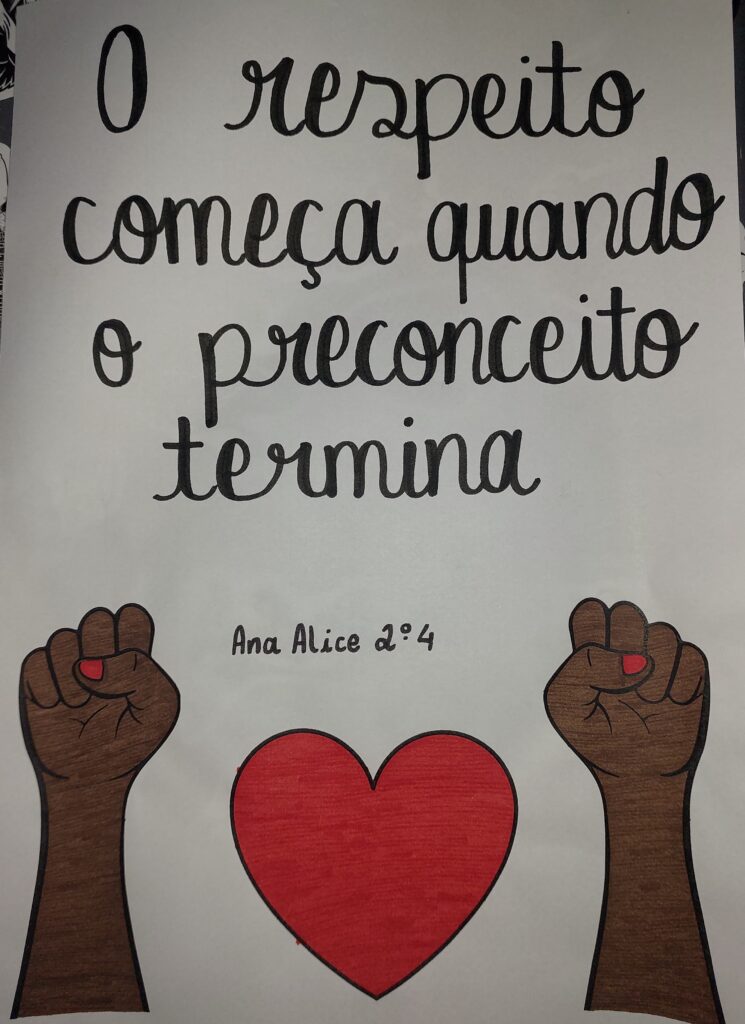 O respeito
começa quando
o preconceito
termina
Ana Alice 2º4